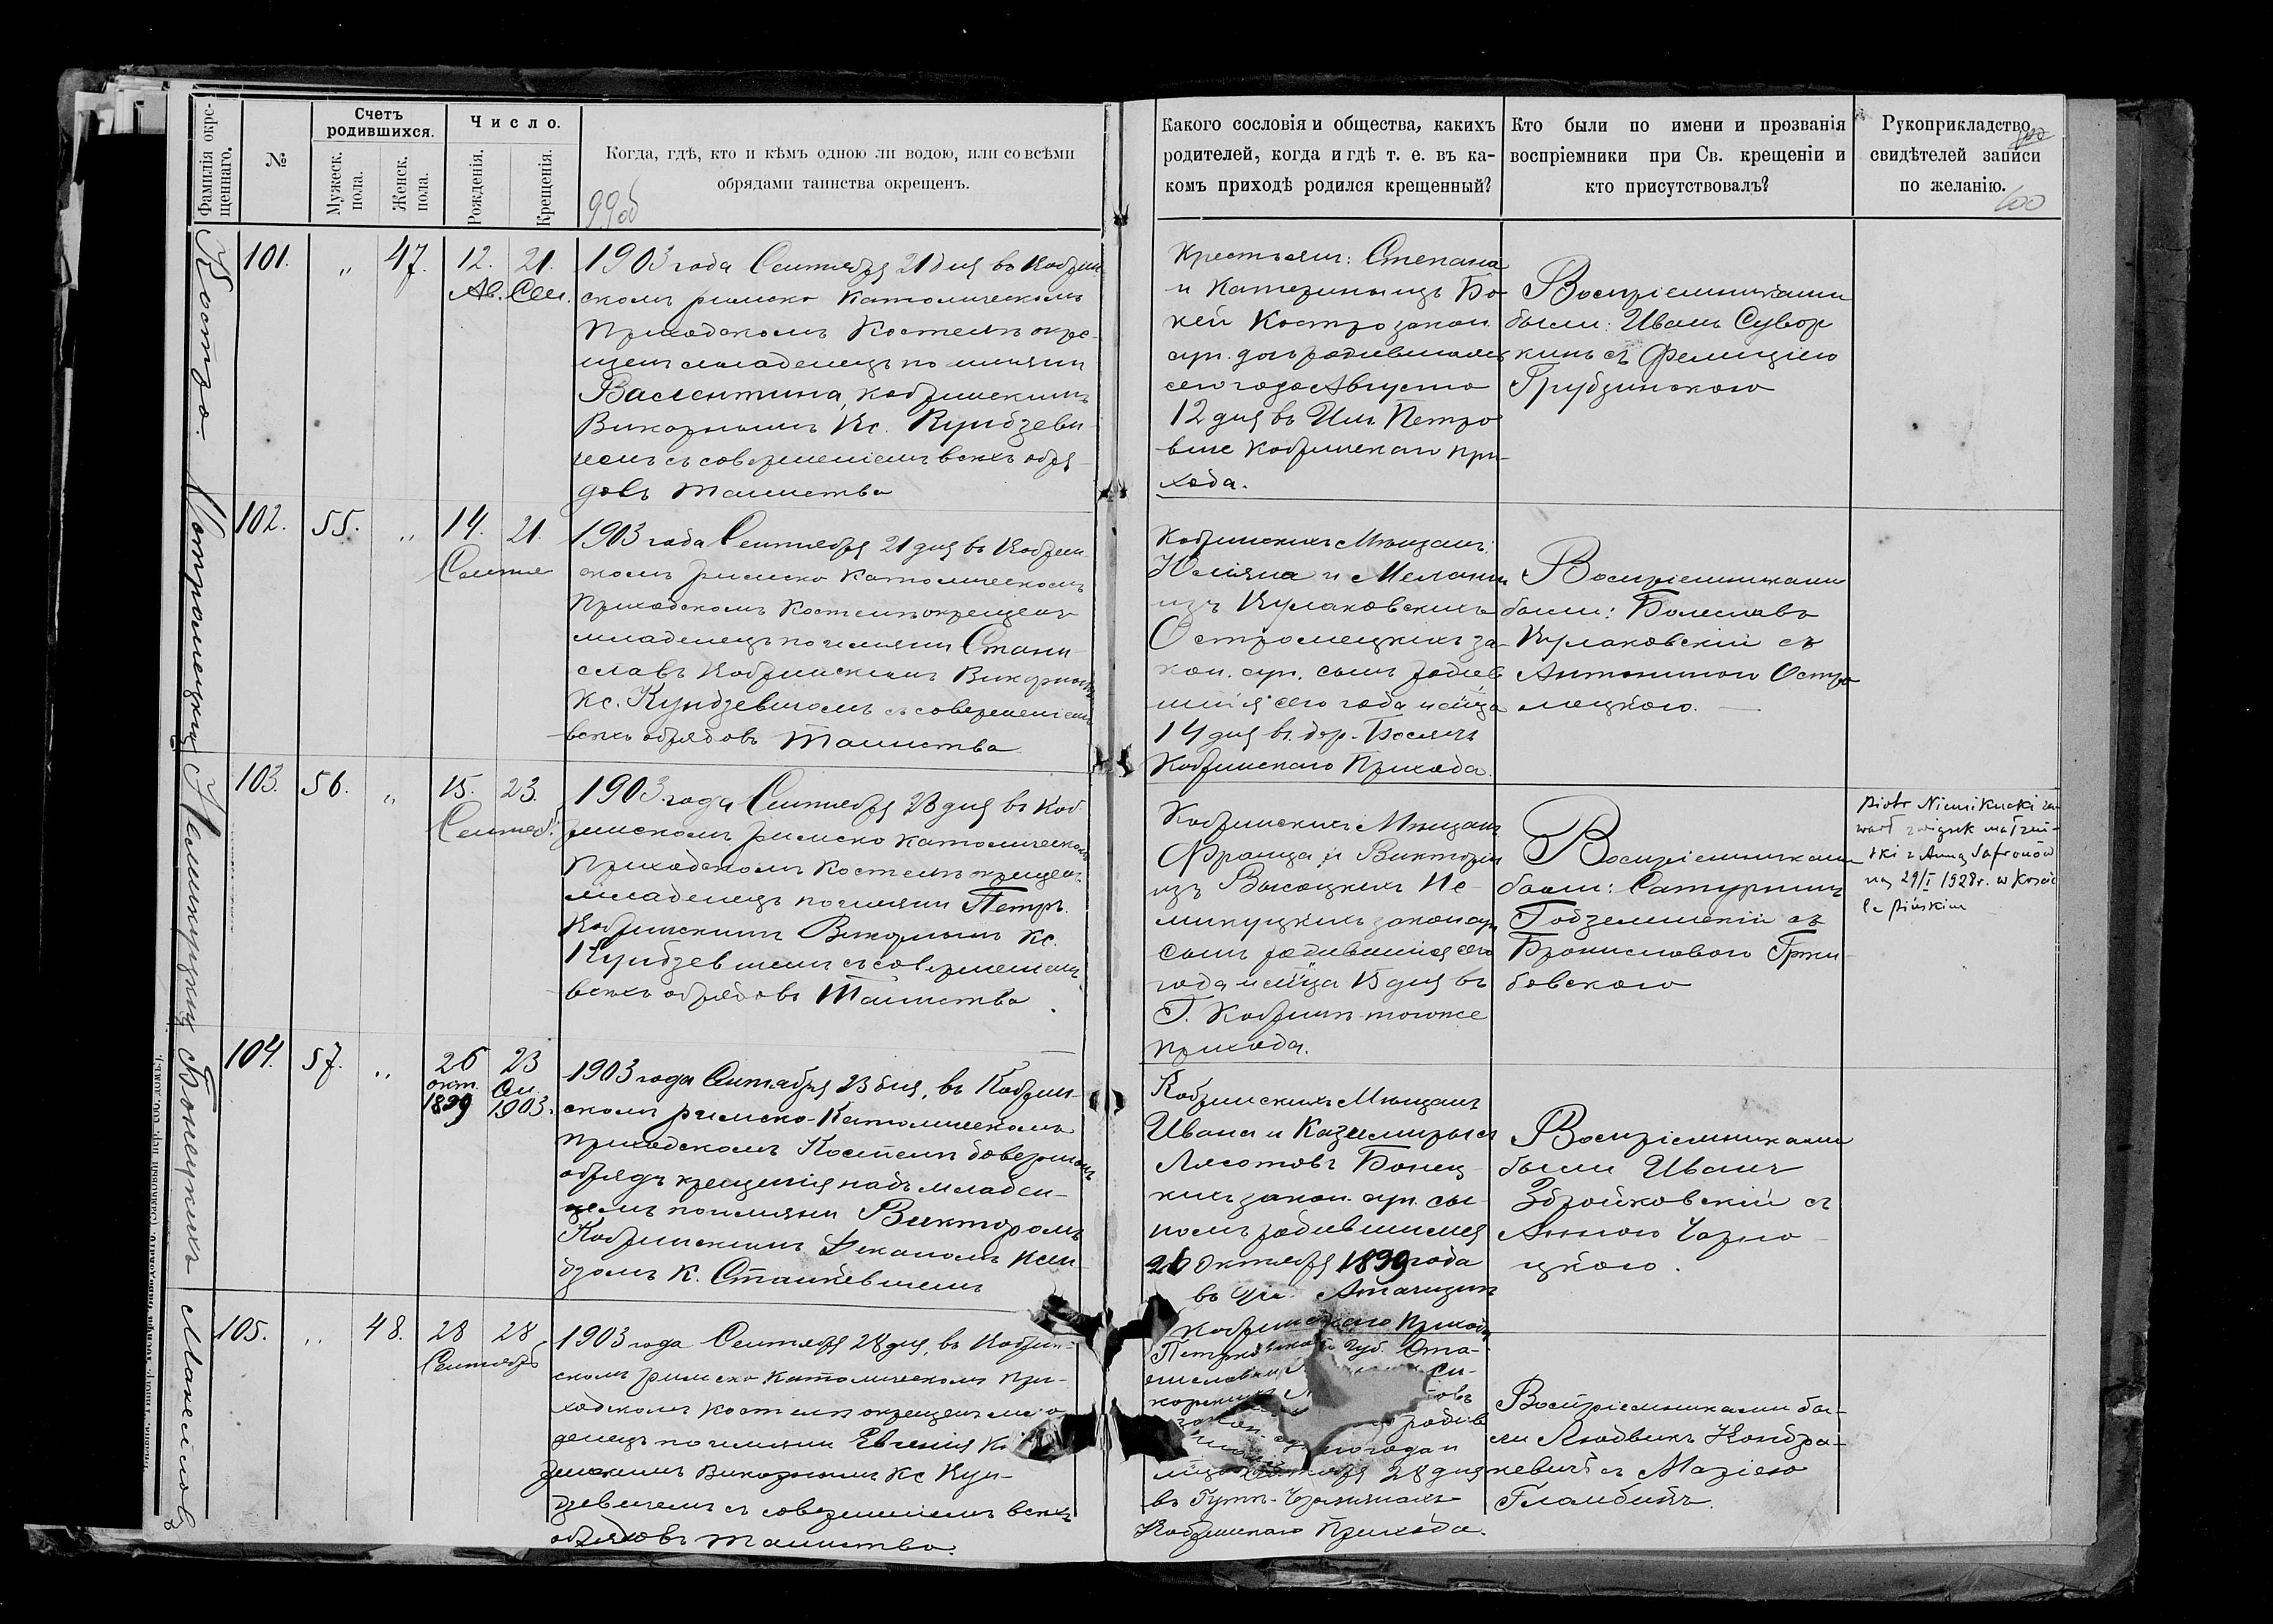 Фамилія окре-
щеннаго.
№
Счетъ
родившихся.
Мужеск.
пола.
Женск.
пола.
Число.
Рожденія.
Крещенія.
Когда, гдѣ, кто и кѣмъ одною ли водою, или со всѣми
обрядами таинства окрещенъ.
99об
Какого сословія и общества, какихъ
родителей, когда и гдѣ т. е. въ ка-
комъ приходѣ родился крещенный?
Кто были по имени и прозванія
воспріемники при Св. крещеніи и
кто присутствовалъ?
Рукоприкладство
свидѣтелей записи
по желанію.
100
Костро.
101.
"
47.
12.
Ав.
21.
Сен.
1903 года Сентября 21 дня въ Кобрин-
скомъ римско Католическомъ
Приходскомъ Костелѣ окре-
щенъ младенецъ по имяни
Валентина, Кобринскимъ
Викарнымъ Кс. Кундзеви-
чемъ съ совершеніемъ всѣхъ обря-
довъ таинства
Крестьян: Степана
и Катерины изъ Бо-
кей Костро закон.
суп. дочь родившаяся
сего года Августа
12 дня въ Им. Петро
вше Кобринскаго При-
хода.
Воспріемниками
были: Иванъ Сувор
кинъ съ Фелиціею
Грубзинскою
Остромецкій
102.
55.
"
14.
Сентя
21.
1903 года Сентября 21 дня въ Кобрин
скомъ римско Католическомъ
Приходскомъ Костелѣ окрещенъ
младенецъ по имяни Стани
славъ Кобринскимъ Викарнымъ
Кс. Кундзевичомъ съ совершеніемъ
всѣхъ обрядовъ таинства
Кобринскихъ Мѣщанъ
Юліяна и Меланіи
изъ Кулаковскихъ
Остромецкихъ за-
кон. суп. сынъ родив
шійся сего года м-ца
14 дня въ дер.
Кобринскаго Прихода.
Воспріемниками
были: Болеславъ
Кулаковскій съ
Антониною Остро
мецкою.
103.
56.
"
15.
Сентяб.
23.
1903 года Сентября 23 дня въ Коб
ринскомъ римско Католическомъ
Приходскомъ Костелѣ окрещенъ
младенецъ по имяни Петръ.
Кобринскимъ Викарнымъ Кс.
Кундзевичемъ съ совершеніемъ
всѣхъ обрядовъ таинства
Кобринскихъ Мѣщанъ
Франца и Викторіи
изъ Высоцкихъ Не-
микуцкихъ закон суп
сынъ родившійся сего
года м-ца 15 дня въ
Г. Кобринѣ того же
прихода.
Воспріемниками
были: Сатурнинъ
Годземинскій съ
Брониславою Гржи
бовскою
Piotr Niemikucki za-
warł związek małżeń-
ski z Anną Safronów
ną 29/I 1928 r. w koście
le Pińskim
Бонецкихъ
104.
57.
"
26
окт.
1899
23
Сен.
1903.
1903 года Сентября 23 дня, въ Кобрин-
скомъ римско-Католическомъ
приходскомъ Костелѣ довершонъ
обрядъ крещенія надъ младен-
цемъ по имяни Викторомъ
Кобринскимъ Деканомъ Ксен-
дзомъ К. Станкевичемъ
Кобринскихъ Мѣщанъ
Ивана и Казимиры съ
Лясотовъ Бонец-
кихъ закон. суп. сы-
номъ родившимся
26 Октября 1899 года
въ Им.
Кобринскаго Прихода
Воспріемниками
были Иванъ
Збройковскій съ
Анною Чарно-
цкою.
105.
"
48.
28
28
Сентябр
1903 года Сентября 28 дня, въ Кобрин-
скомъ римско Католическомъ При-
ходскомъ Костелѣ окрещенъ мла
денецъ по имяни Евгенія
ринскимъ Викарнымъ Кс Кун-
дзевичемъ съ совершеніемъ всѣхъ
обрядовъ таинства.
Губ. Ста-
28 дня
въ
Кобринскаго Прихода.
Воспріемниками бы-
ли Людвикъ Кондра-
кевичъ съ Маріею